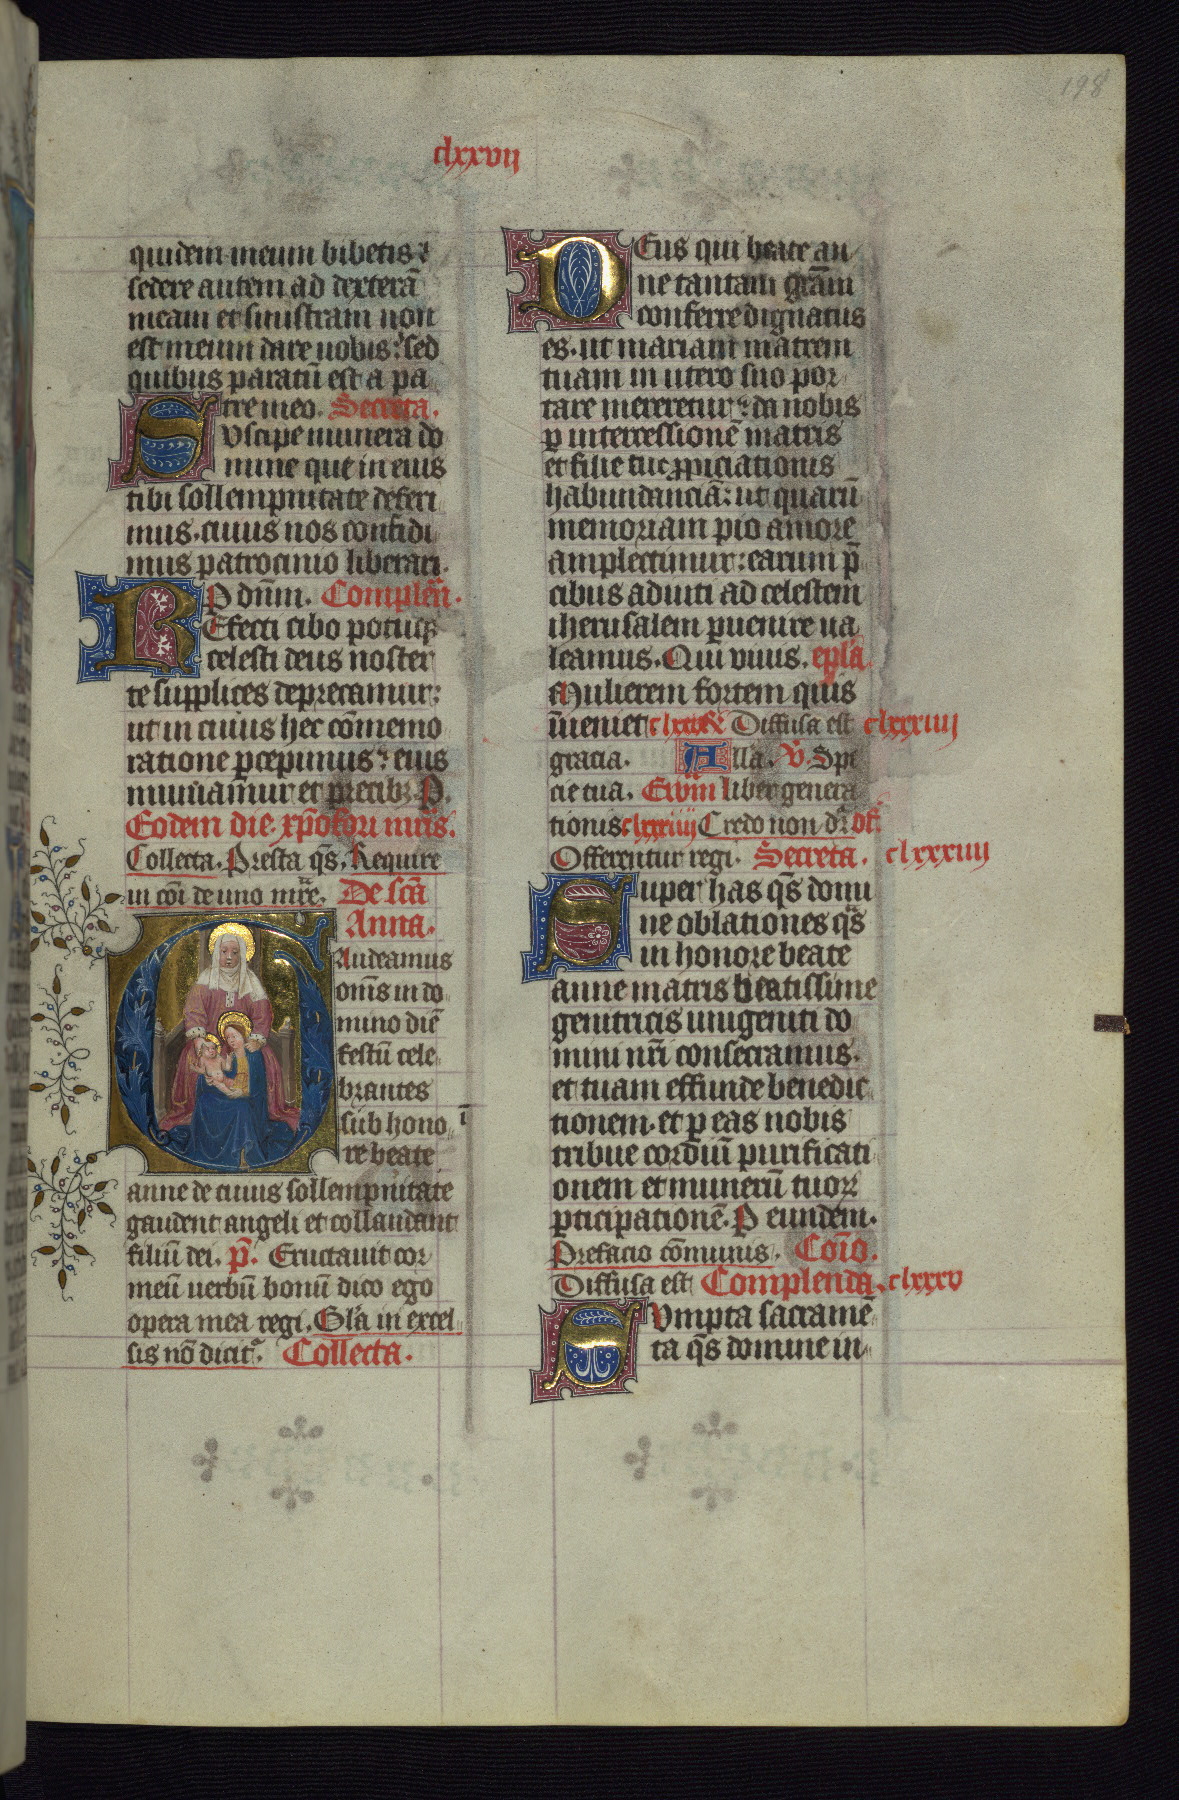 198
clxxvii
quidem meum bibetis:
sedere autem ad dexterā
meam et sinistram non
est meum dare uobis: sed
quibus paratū est a pa
tre meo. Secreta.
SUscipe munera do
mine que in eius
tibi sollempnitate deferi
mus. cuius nos confidi
mus patrocinio liberari.
P dnm̄. Complen̄.
REfecti cibo potuqꝫ
celesti deus noster
te supplices deprecamur:
ut in cuius hec cōmemo
ratione ꝑcepimus: eius
muniamur et precibꝫ P.
Eodem die xp̄ofori mr̄is.
Collecta. Presta qs̄. Require
in cōi de uno mr̄e. De scā
Anna.
GAudeamus
oms̄ in do
mino diē
festū cele
brantes
sub hono
re beate
anne de cuius sollempnitate
gaudent angeli et collaudant
filiū dei. p̄. Eructauit cor
meū uerbū bonū dico ego
opera mea regi. Glā in excel
sis nō dicit᷑. Collecta.
DEus qui beate an
ne tantam grām
conferre dignatus
es. ut mariam matrem
tuam in utero suo por
tare mereretur: da nobis
ꝑ intercessionē matris
et filie tue ꝓpiciationis
habundanciā: ut quarū
memoriam pio amore
amplectimur: earum p̄
cibus aduiti ad celestem
iherusalem ꝑuenire ua
leamus. Qui viuis. epl̄a
Mulierem fortem quis
īueniet Diffusa est clxxxiiii
gracia. Alla. V. Spe
cie tua. Ewm̄ liber genera
tionis clxxxiiii Credo non dr̄ of̄.
Offerentur regi. Secreta. clxxxiiii
Super has qs̄ domi
ne oblationes qs̄
in honore beate
anne matris beatissime
genitricis unigeniti do
mini nr̄i consecramus.
et tuam effunde benedic
tionem. et ꝑ eas nobis
tribue cordiū purificati
onem et munerū tuoꝝ
ꝑticipationē. P eundem.
Prefacio cōmunis. Coīo.
Diffusa est Complenda. clxxxv
SUmpta sacramē
ta qs̄ domine in